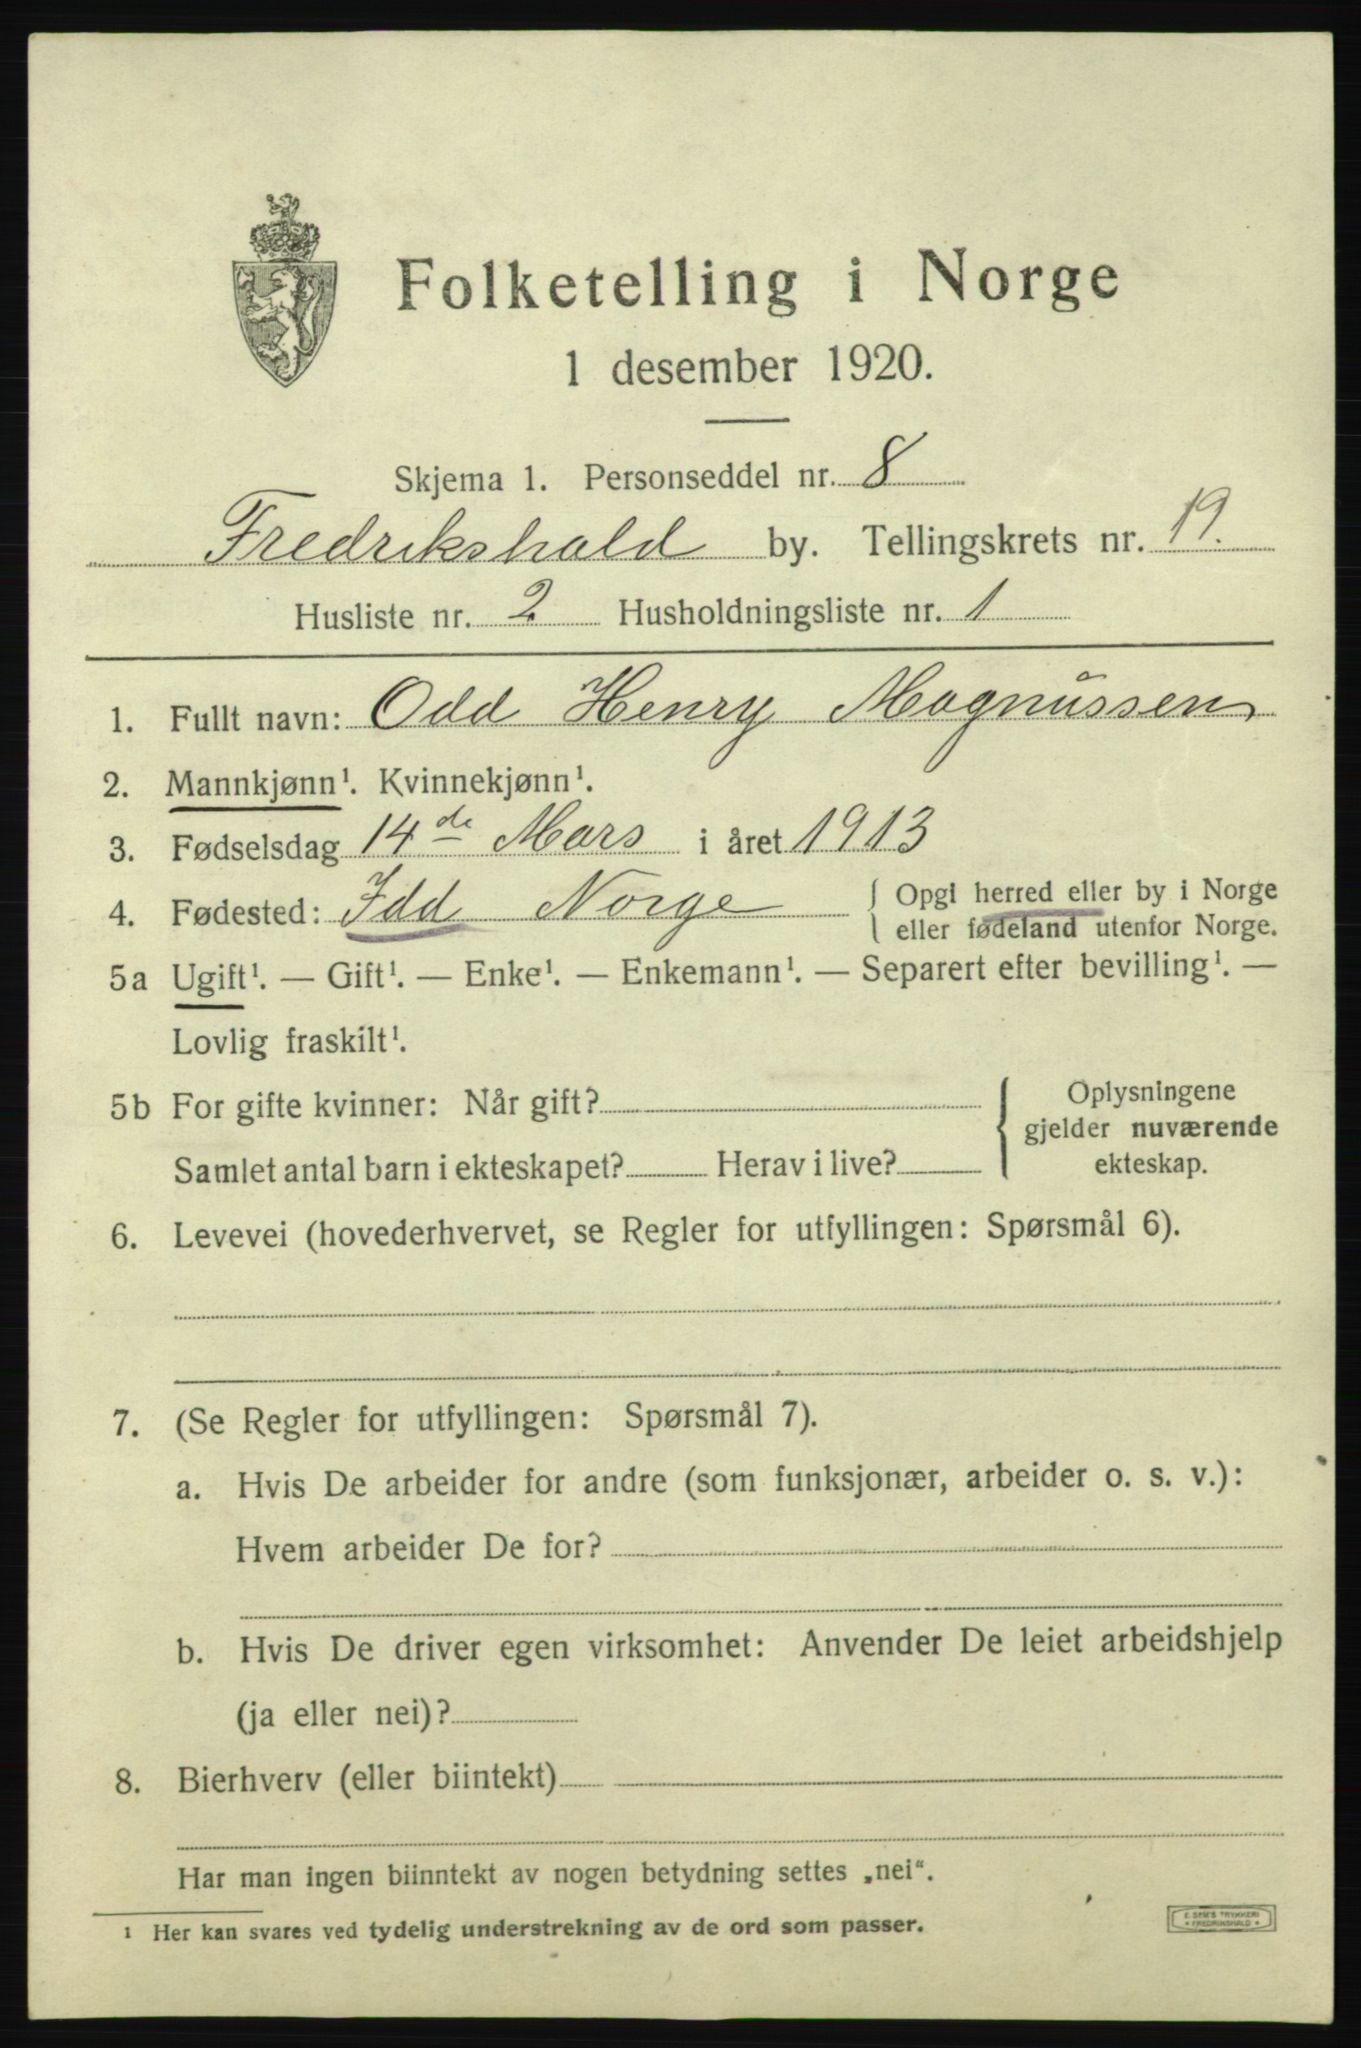 Folketelling i Norge
1 desember 1920.
Skjema 1. Personseddel nr. 8
Fredrikshald by. Tellingskrets nr. 19.
Husliste nr. 2 Husholdningsliste nr. 1
1. Fullt navn: Odd Henry Magnussen
2. Mannkjønn¹. Kvinnekjønn¹.
3. Fødselsdag 14de Mars i året 1913
4. Fødested: Idd Norge
Opgi herred eller by i Norge
eller fødeland utenfor Norge.
5a Ugift¹. — Gift¹. — Enke¹. — Enkemann¹. — Separert efter bevilling¹. —
Lovlig fraskilt¹.
5b For gifte kvinner: Når gift?
Samlet antal barn i ekteskapet? Herav i live?
Oplysningene
gjelder nuværende
ekteskap.
6. Levevei (hovederhvervet, se Regler for utfyllingen: Spørsmål 6).
7. (Se Regler for utfyllingen: Spørsmål 7).
a. Hvis De arbeider for andre (som funksjonær, arbeider o. s. v.):
Hvem arbeider De for?
b. Hvis De driver egen virksomhet: Anvender De leiet arbeidshjelp
(ja eller nei)?
8. Bierhverv (eller biintekt)
Har man ingen biinntekt av nogen betydning settes „nei“.
¹ Her kan svares ved tydelig understrekning av de ord som passer.
E. SEM'S TRYKKERI
• FREDRIKSHALD •